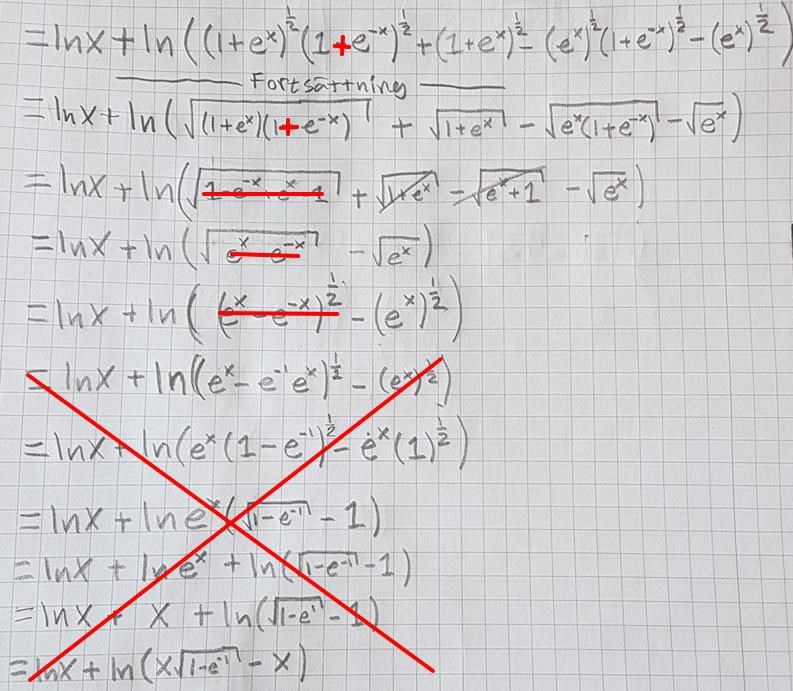 = lnx + ln((1+eˣ)^½(1+e⁻ˣ)^½ + (1+eˣ)^½ - (eˣ)^½(1+e⁻ˣ)^½ - (eˣ)^½)
Fortsättning
= lnx + ln(√((1+eˣ)(1+e⁻ˣ)) + √(1+eˣ) - √(eˣ(1+e⁻ˣ)) - √(eˣ))
= lnx + ln(√(1-e⁻ˣ+eˣ-1) + √(1+eˣ) - √(eˣ+1) - √(eˣ))
= lnx + ln(√(eˣ-e⁻ˣ) - √(eˣ))
= lnx + ln((eˣ-e⁻ˣ)^½ - (eˣ)^½)
= lnx + ln((eˣ - e⁻¹eˣ)^½ - (eˣ)^½)
= lnx + ln(eˣ(1-e⁻¹)^½ - eˣ(1)^½)
= lnx + ln eˣ(√(1-e⁻¹) - 1)
= lnx + ln eˣ + ln(√(1-e⁻¹) - 1)
= lnx + x + ln(√(1-e⁻¹) - 1)
= lnx + ln(x√(1-e⁻¹) - x)